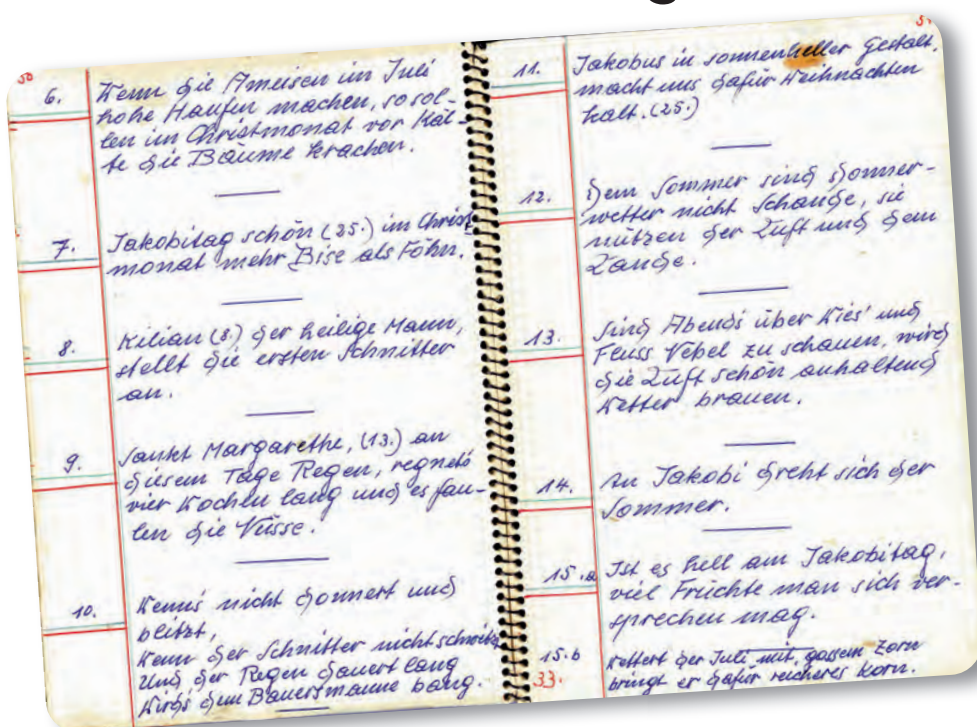 50
6.
Wenn die Ameisen im Juli
hohe Haufen machen, so sol-
len im Christmonat vor Käl-
te die Bäume krachen.
7.
Jakobitag schön (25.) im Christ
monat mehr Bise als Föhn.
8.
Kilian (8.) der heilige Mann,
stellt die ersten Schnitter
an.
9.
Sankt Margarethe, (13.) an
diesem Tage Regen, regnets
vier Wochen lang und es fau-
len die Nüsse.
10.
Wenns nicht donnert und
blitzt,
Wenn der Schnitter nicht schwitzt
Und der Regen dauert lang
Wirds dem Bauersmanne bang.
11.
Jakobus in sonnenheller Gestalt,
macht uns dafür Weihnachten
kalt. (25.)
12.
Dem Sommer sind Donner-
wetter nicht Schande, sie
nützen der Luft und dem
Lande.
13.
Sind Abends über Wies' und
Fluss Nebel zu schauen, wird
die Luft schön anhaltend
Wetter brauen.
14.
An Jakobi dreht sich der
Sommer.
15.a
Ist es hell am Jakobitag,
viel Früchte man sich ver-
sprechen mag.
15.b
Wettert der Juli mit gossem Zorn
33.
bringt er dafür reicheres Korn.